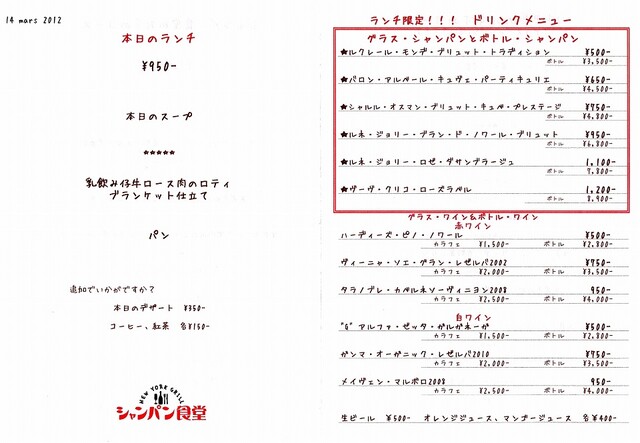 14 mars 2012
本日のランチ
¥950-
本日のスープ
*****
乳飲み仔牛ロース肉のロティ
ブランケット仕立て
パン
追加でいかがですか？
本日のデザート ¥350-
コーヒー、紅茶 各¥150-
NEW YORK GRILL
シャンパン食堂
ランチ限定!!! ドリンクメニュー
グラス・シャンパンとボトル・シャンパン
★ルクレール・モンデ・ブリュット・トラディション ¥500-
ボトル ¥3,500-
★バロン・アルベール・キュヴェ・パーティキュリエ ¥650-
ボトル ¥4,500-
★シャルル・オスマン・ブリュット・キュベ・プレステージ ¥750-
ボトル ¥4,800-
★ルネ・ジョリー・ブラン・ド・ノワール・ブリュット ¥950-
ボトル ¥6,800-
★ルネ・ジョリー・ロゼ・ダサンブラージュ 1,100-
ボトル 7,800-
★ヴーヴ・クリコ・ローズラベル 1,200-
ボトル 8,900-
グラス・ワイン&ボトル・ワイン
赤ワイン
ハーディーズ・ピノ・ノワール ¥500-
カラフェ ¥1,500- ボトル ¥2,800-
ヴィーニャ・ソエ・グラン・レゼルバ2002 ¥750-
カラフェ ¥2,000- ボトル ¥3,500-
タラノブレ・カベルネソーヴィニヨン2008 950-
カラフェ ¥2,500- ボトル ¥4,000-
白ワイン
"G"アルファ・ゼッタ・ガルガネーガ ¥500-
カラフェ ¥1,500- ボトル ¥2,800-
ガンマ・オーガニック・レゼルバ2010 ¥750-
カラフェ ¥2,000- ボトル ¥3,500-
メイヴェン・マルボロ2008 950-
カラフェ ¥2,500- ボトル ¥4,000-
生ビール ¥500- オレンジジュース、マンゴージュース 各¥400-